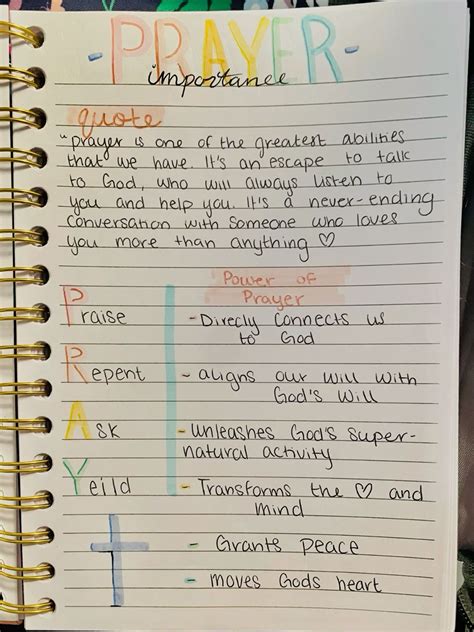 -PRAYER-
importance
quote
"prayer is one of the greatest abilities
that we have. It's an escape to talk
to God, who will always listen to
you and help you. It's a never-ending
conversation with someone who loves
you more than anything ♡
Power of
Prayer
Praise
- Direcly connects us
to God
Repent
- aligns our will with
God's will
Ask
- unleashes God's super-
natural activity
Yeild
- Transforms the ♡ and
mind
- Grants peace
- moves Gods heart